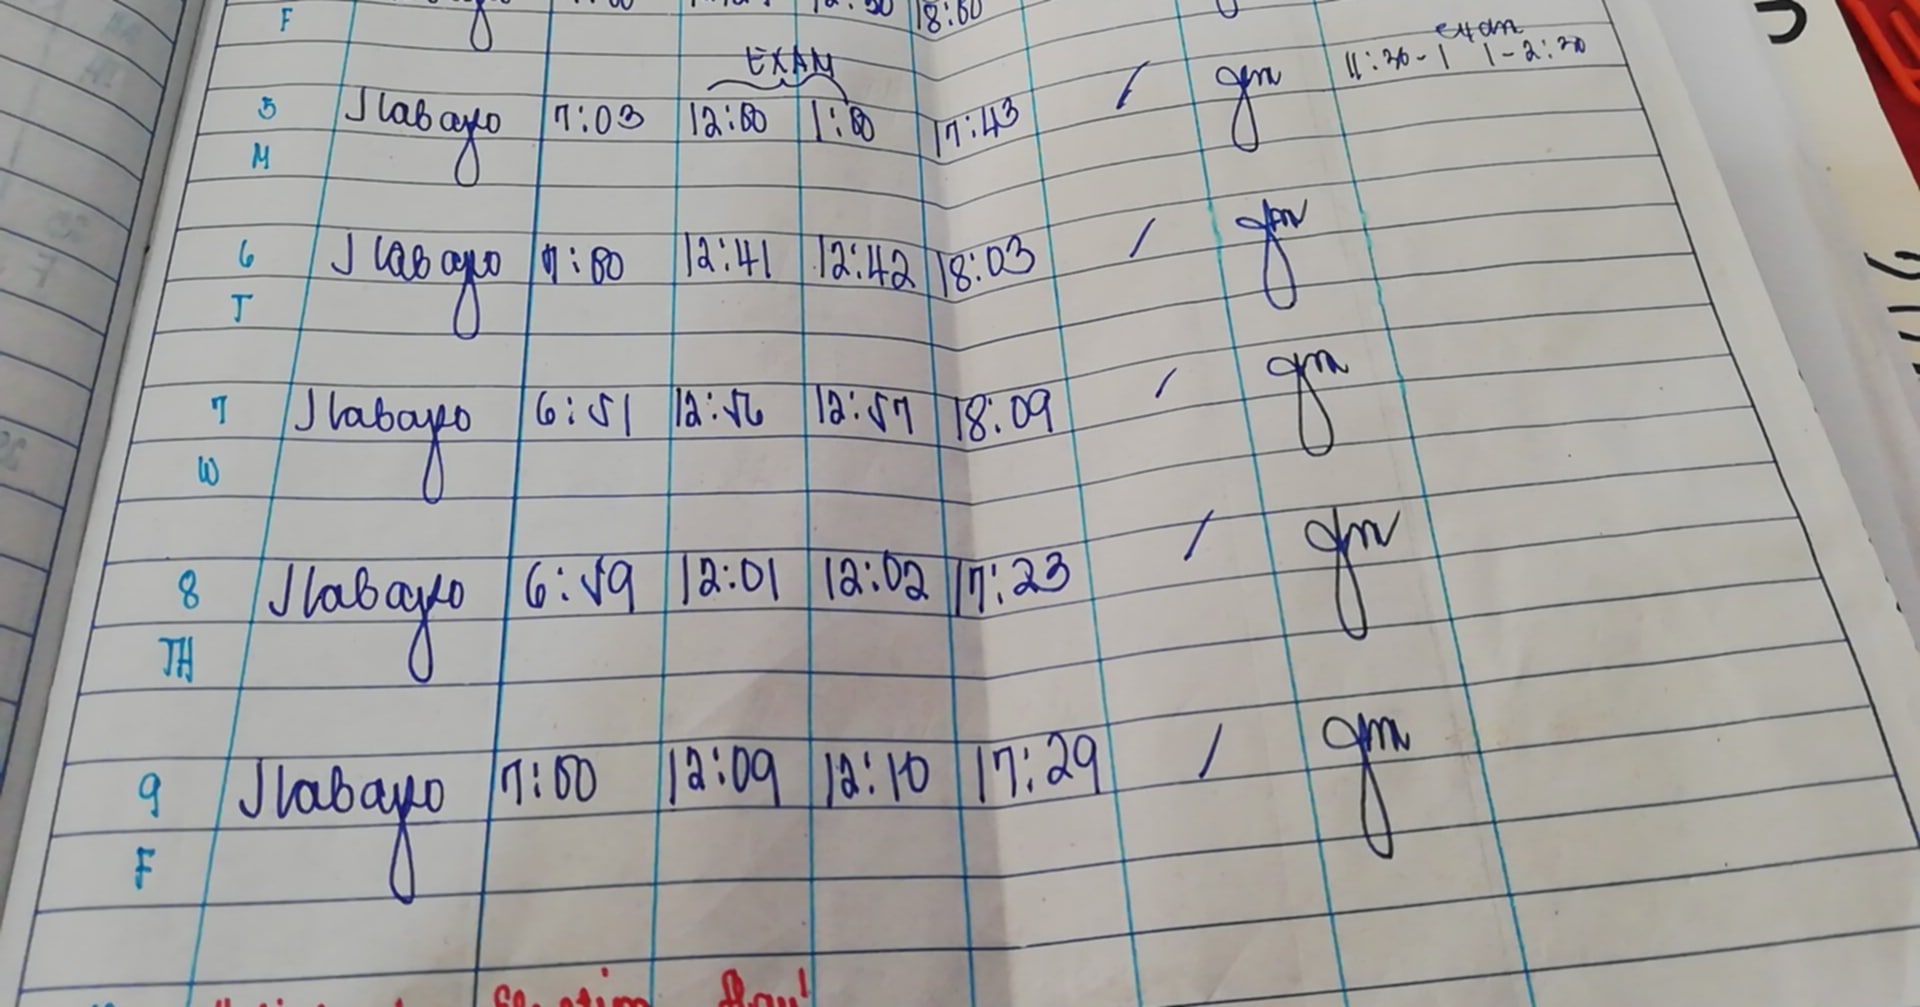 F 18:00
EXAM exam
11:30-1 1-2:30
5 Jlabayo 7:03 12:00 1:00 17:43 / gm
M
6 Jlabayo 7:00 12:41 12:42 18:03 / gm
T
7 Jlabayo 6:51 12:56 12:57 18:09 / gm
W
8 Jlabayo 6:59 12:01 12:02 17:23 / gm
TH
9 Jlabayo 7:00 12:09 12:10 17:29 / gm
F